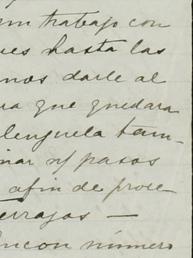 un trabajo con
ues hasta las
mos darle al
ra que quedara
lenguela tam-
inar n/ pasos
afin de proce
errajos —
incon número